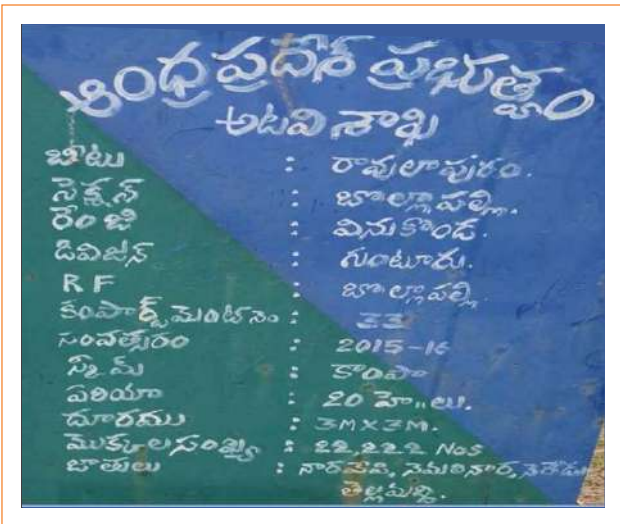 ఆంధ్ర ప్రదేశ్ ప్రభుత్వం
అటవి శాఖ
బీటు : రావులాపురం.
సెక్షన్ : బొల్లాపల్లి.
రేంజి : వినుకొండ.
డివిజన్ : గుంటూరు.
RF : బొల్లాపల్లి.
కంపార్ట్ మెంట్ నెం : 33
సంవత్సరం : 2015-16
స్కీమ్ : కాంపా
ఏరియా : 20 హె"లు.
దూరము : 3M X 3M.
మొక్కల సంఖ్య : 22,222 Nos
జాతులు : నారవేపి, నెమలినార, నేరేడు
తెల్లమద్ది.